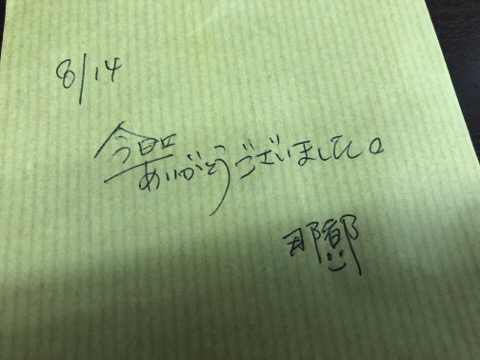 8/14
今日は
ありがとうございました。
那都